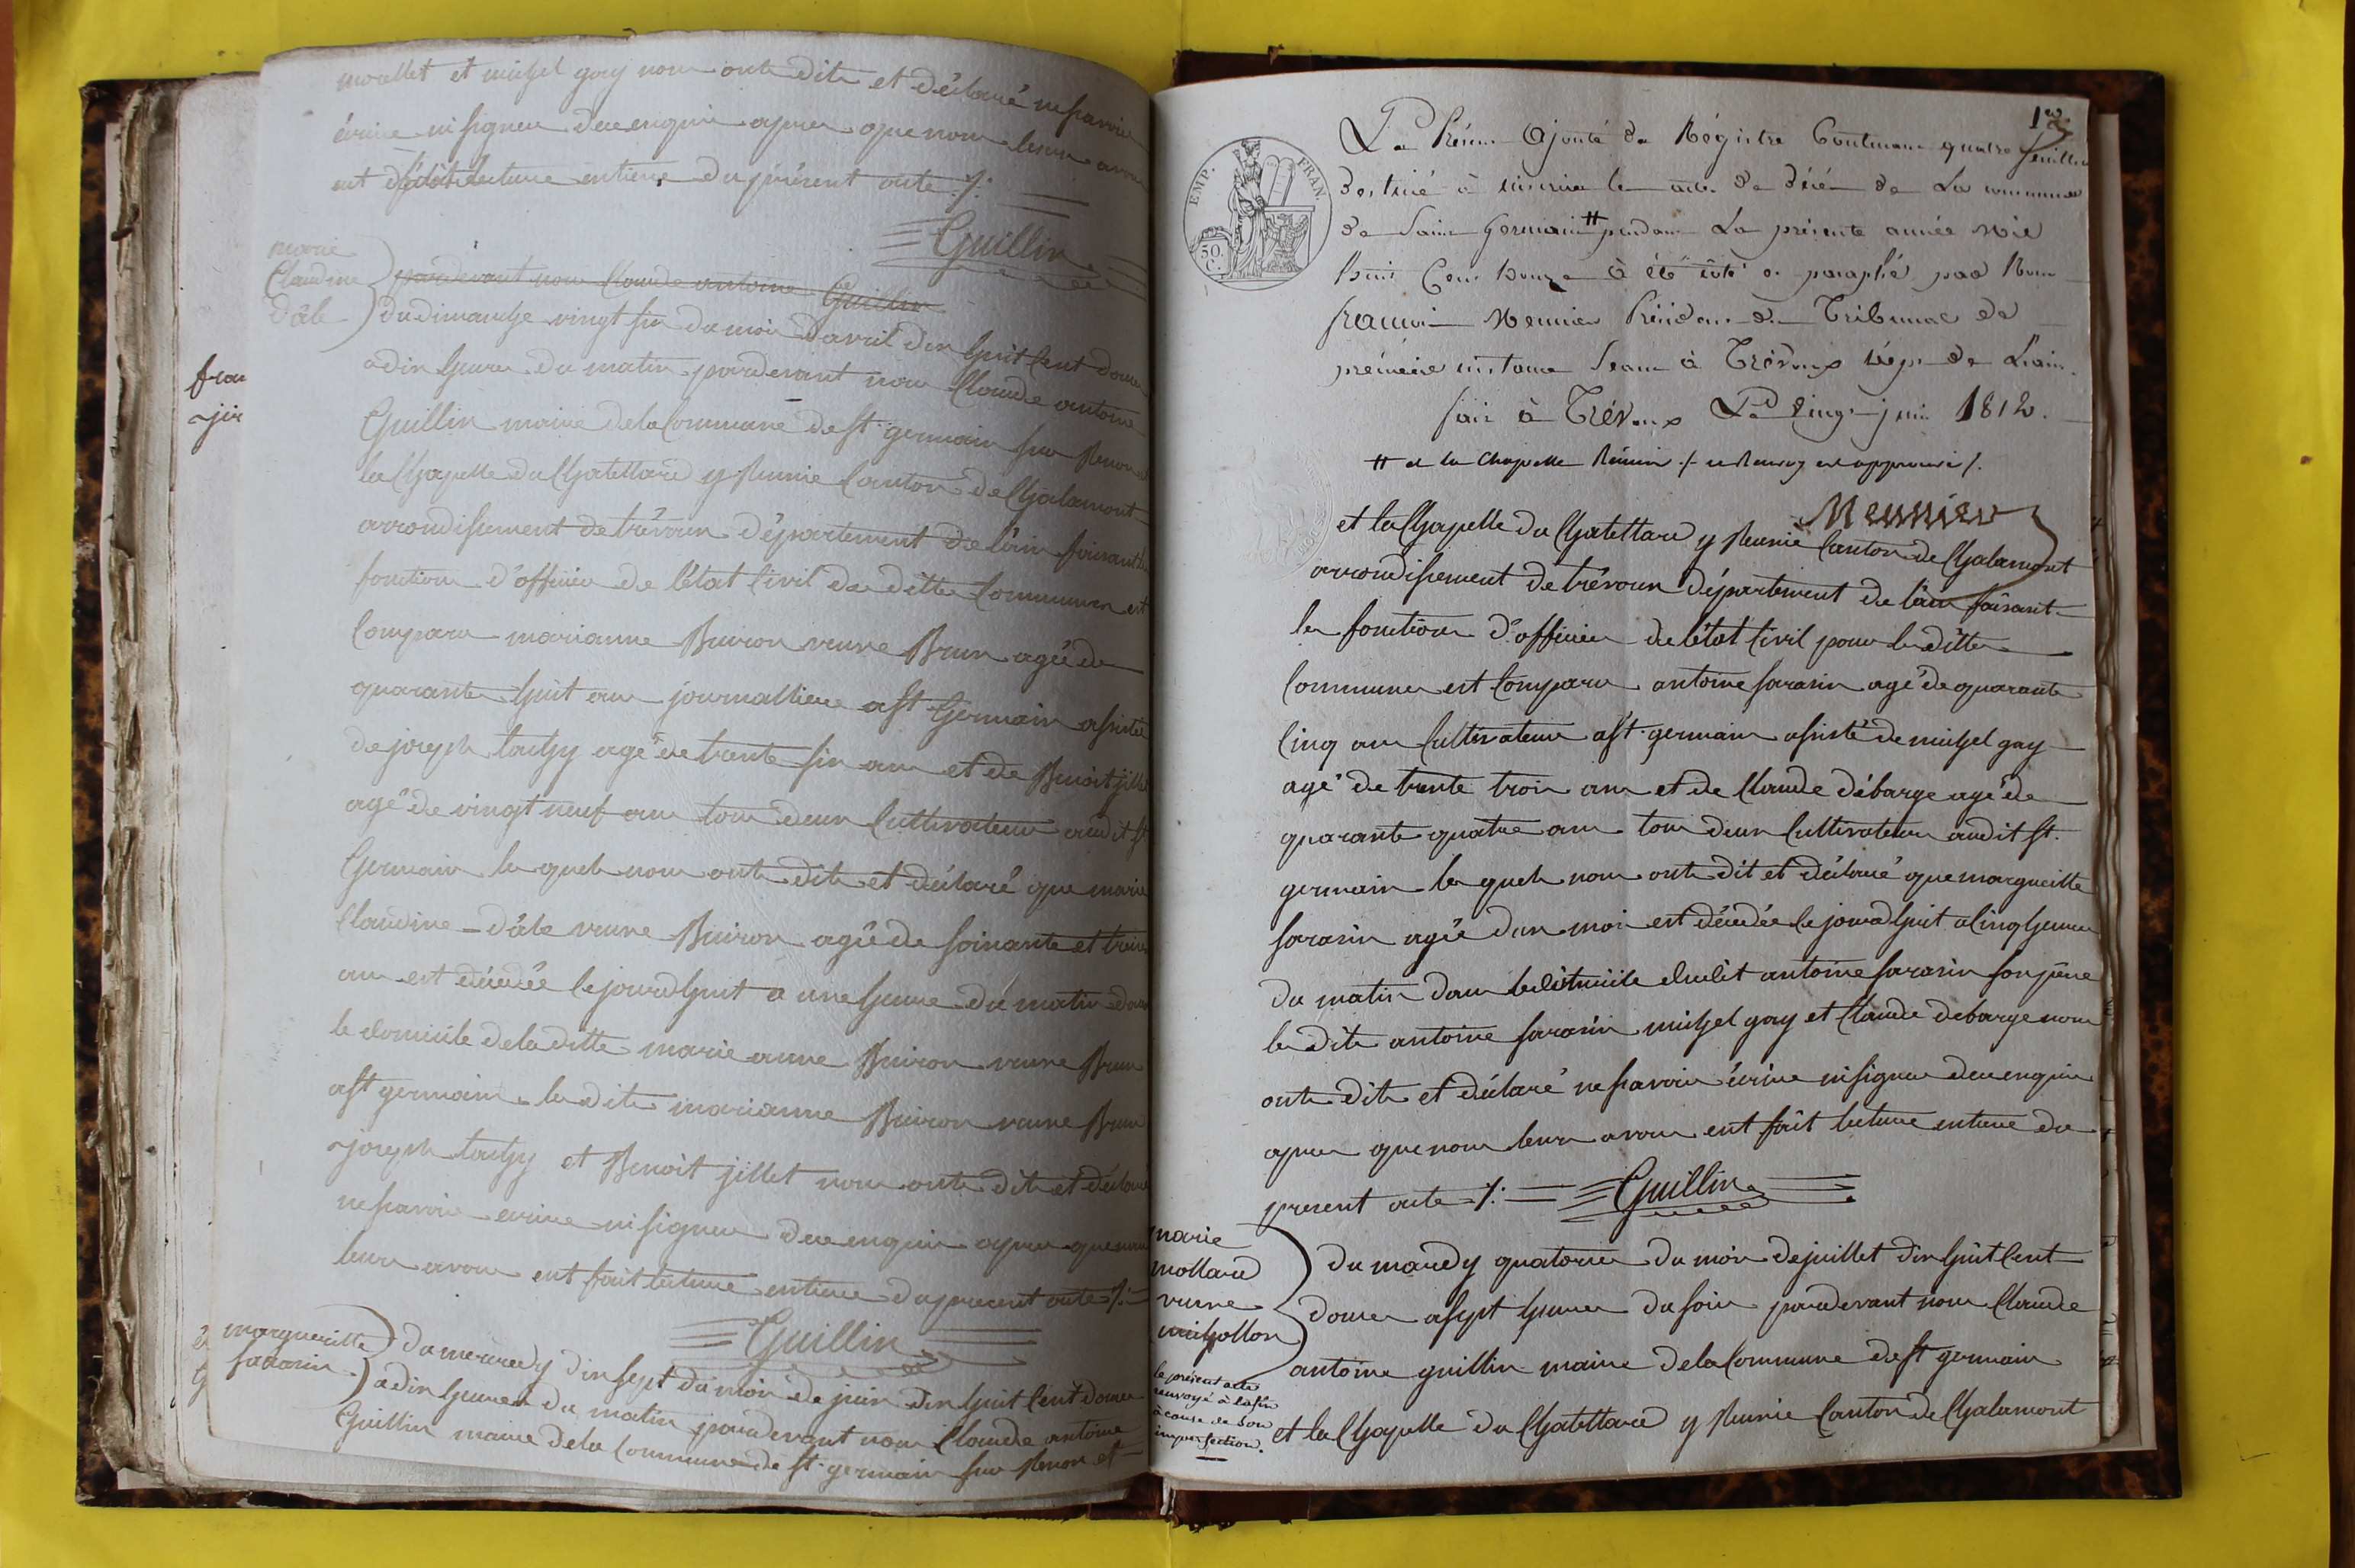 morellet et michel gay nous ont dits et déclaré ne savoir
écrire ni signer de ce enquis apres que nous leurs avons
eut fait lecture entiere du présent acte ./.
Guillin
marie
Claudine
Dâle
pardevant nous Claude antoine Guillin
Du dimanche vingt six du mois d'avril dix huit Cent douze
a dix heures du matin pardevant nous Claude antoine
Guillin maire de la Commune de st. germain sur Renon et
la Chapelle du Chatellard y Reunie Canton de Chalamont
arrondissement de trévoux département de l'ain faisant les
fonctions d'officier de l'état Civil des dittes Communes est
Comparu marianne Buiron veuve Brun agée de
quarante huit ans journalliere a St Germain assistée
de joseph tachy agé de trente six ans et de Benoit jillet
agé de vingt neuf ans tous deux Cultivateurs audit st
Germain les quels nous ont dits et déclaré que marie
Claudine Dâle veuve Buiron agée de soixante et treize
ans est décédée Cejourd'huit a une heure du matin dans
le domicile de la ditte marie anne Buiron veuve Brun
a St germain les dits marianne Buiron veuve Brun
joseph tachy et Benoit jillet nous ont dits et déclaré
ne savoir ecrire ni signer de ce enquis apres que nous
leurs avons eut fait lecture entiere du present acte ./.
Guillin
margueritte
sarasin
du mecredy dix sept du mois de juin dix huit Cent douze
a dix heures du matin pardevant nous Claude antoine
Guillin maire de la Commune de st. germain sur Renon et
frau
jir
1er
EMP. FRAN.
50 C.
Le Présent Ajouté de Régistre Contenant quatre feuillets
destiné à inscrire les actes de décès de La commune
de Saint Germain # pendant La présente année Mil
huit Cent Douze à été côté et paraphé par Nous
françois Meunier Président du Tribunal de
première instance Séant à Trévoux Dépt. de L'ain.
fait à Trévoux Le vingt juin 1812.
# et la Chapelle Réunis ./. ce Renvoy est approuvé /.
Meunier
et la Chapelle du Chatellard y Reunie Canton de Chalamont
arrondissement de trévoux département de l'ain faisant
les fonctions d'officier de l'état Civil pour les dittes
Communes est Comparu antoine sarasin agé de quarante
Cinq ans Cultivateur a St. germain assisté de michel gay
agé de trente trois ans et de Claude débarge agé de
quarante quatre ans tous deux Cultivateurs audit st.
germain les quels nous ont dit et déclaré que margueritte
sarasin agée d'un mois est décédée Cejourd'huit a Cinq heures
du matin dans le domicile dudit antoine sarasin son pere
les dits antoine sarasin michel gay et Claude debarge nous
ont dits et déclaré ne savoir écrire ni signer de ce enquis
apres que nous leurs avons eut fait lecture entiere du
present acte ./. Guillin
marie
mollard
veuve
michollon
le présent acte
renvoyé à la fin
à cause de son
imperfection.
du mardy quatorze du mois de juillet dix huit Cent
douze a sept heures du soir pardevant nous Claude
antoine guillin maire de la Commune de st germain
et la Chapelle du Chatellard y Reunie Canton de Chalamont